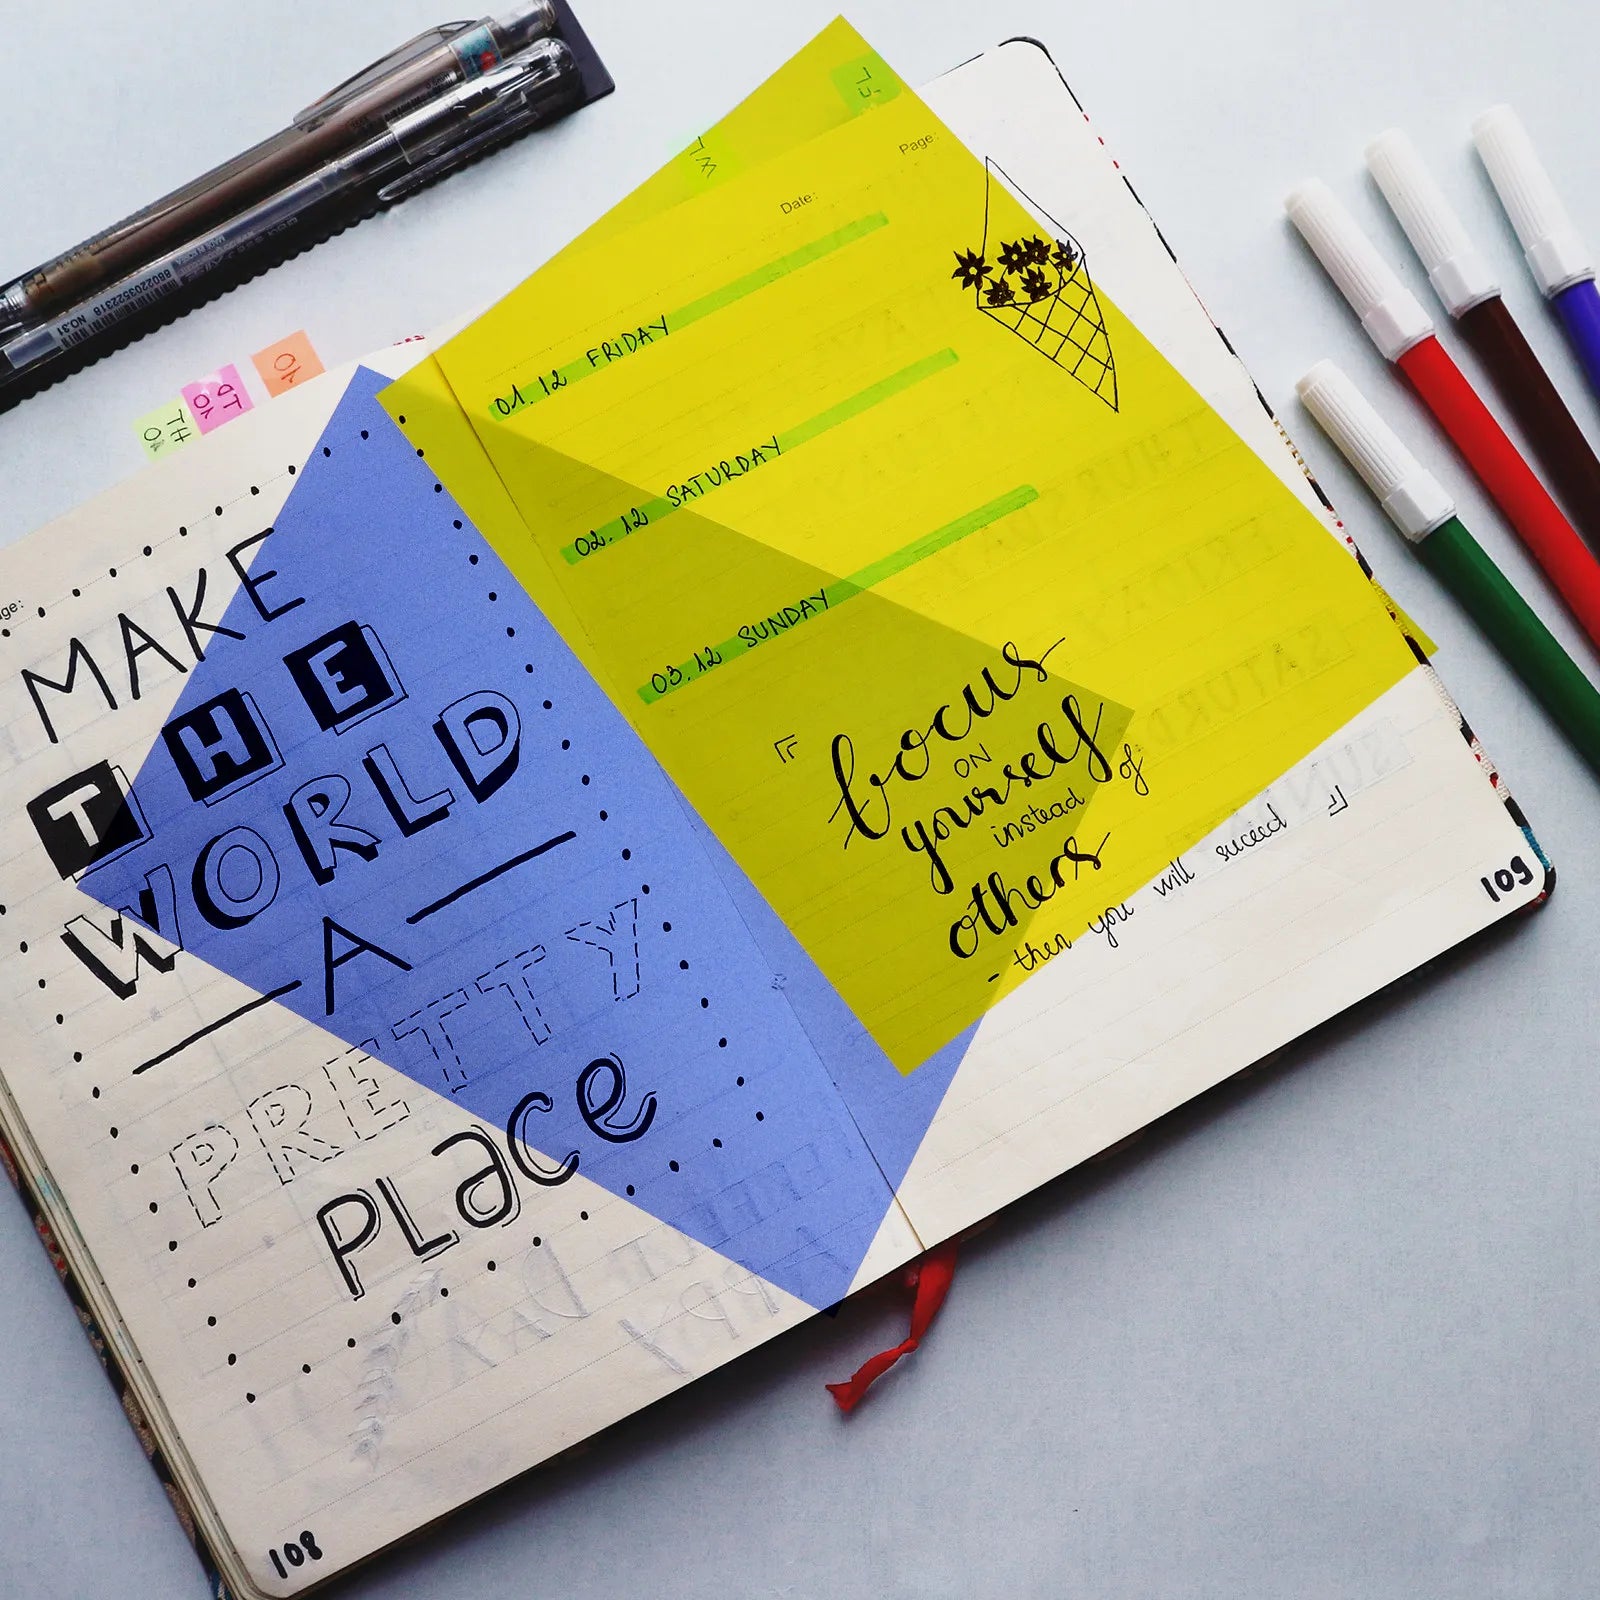 MAKE
THE
WORLD
A
PRETTY
PLace
108
Date:
Page:
01. 12 FRIDAY
02. 12 SATURDAY
03. 12 SUNDAY
focus
ON
yourself
instead of
others
- then you will suceed
109